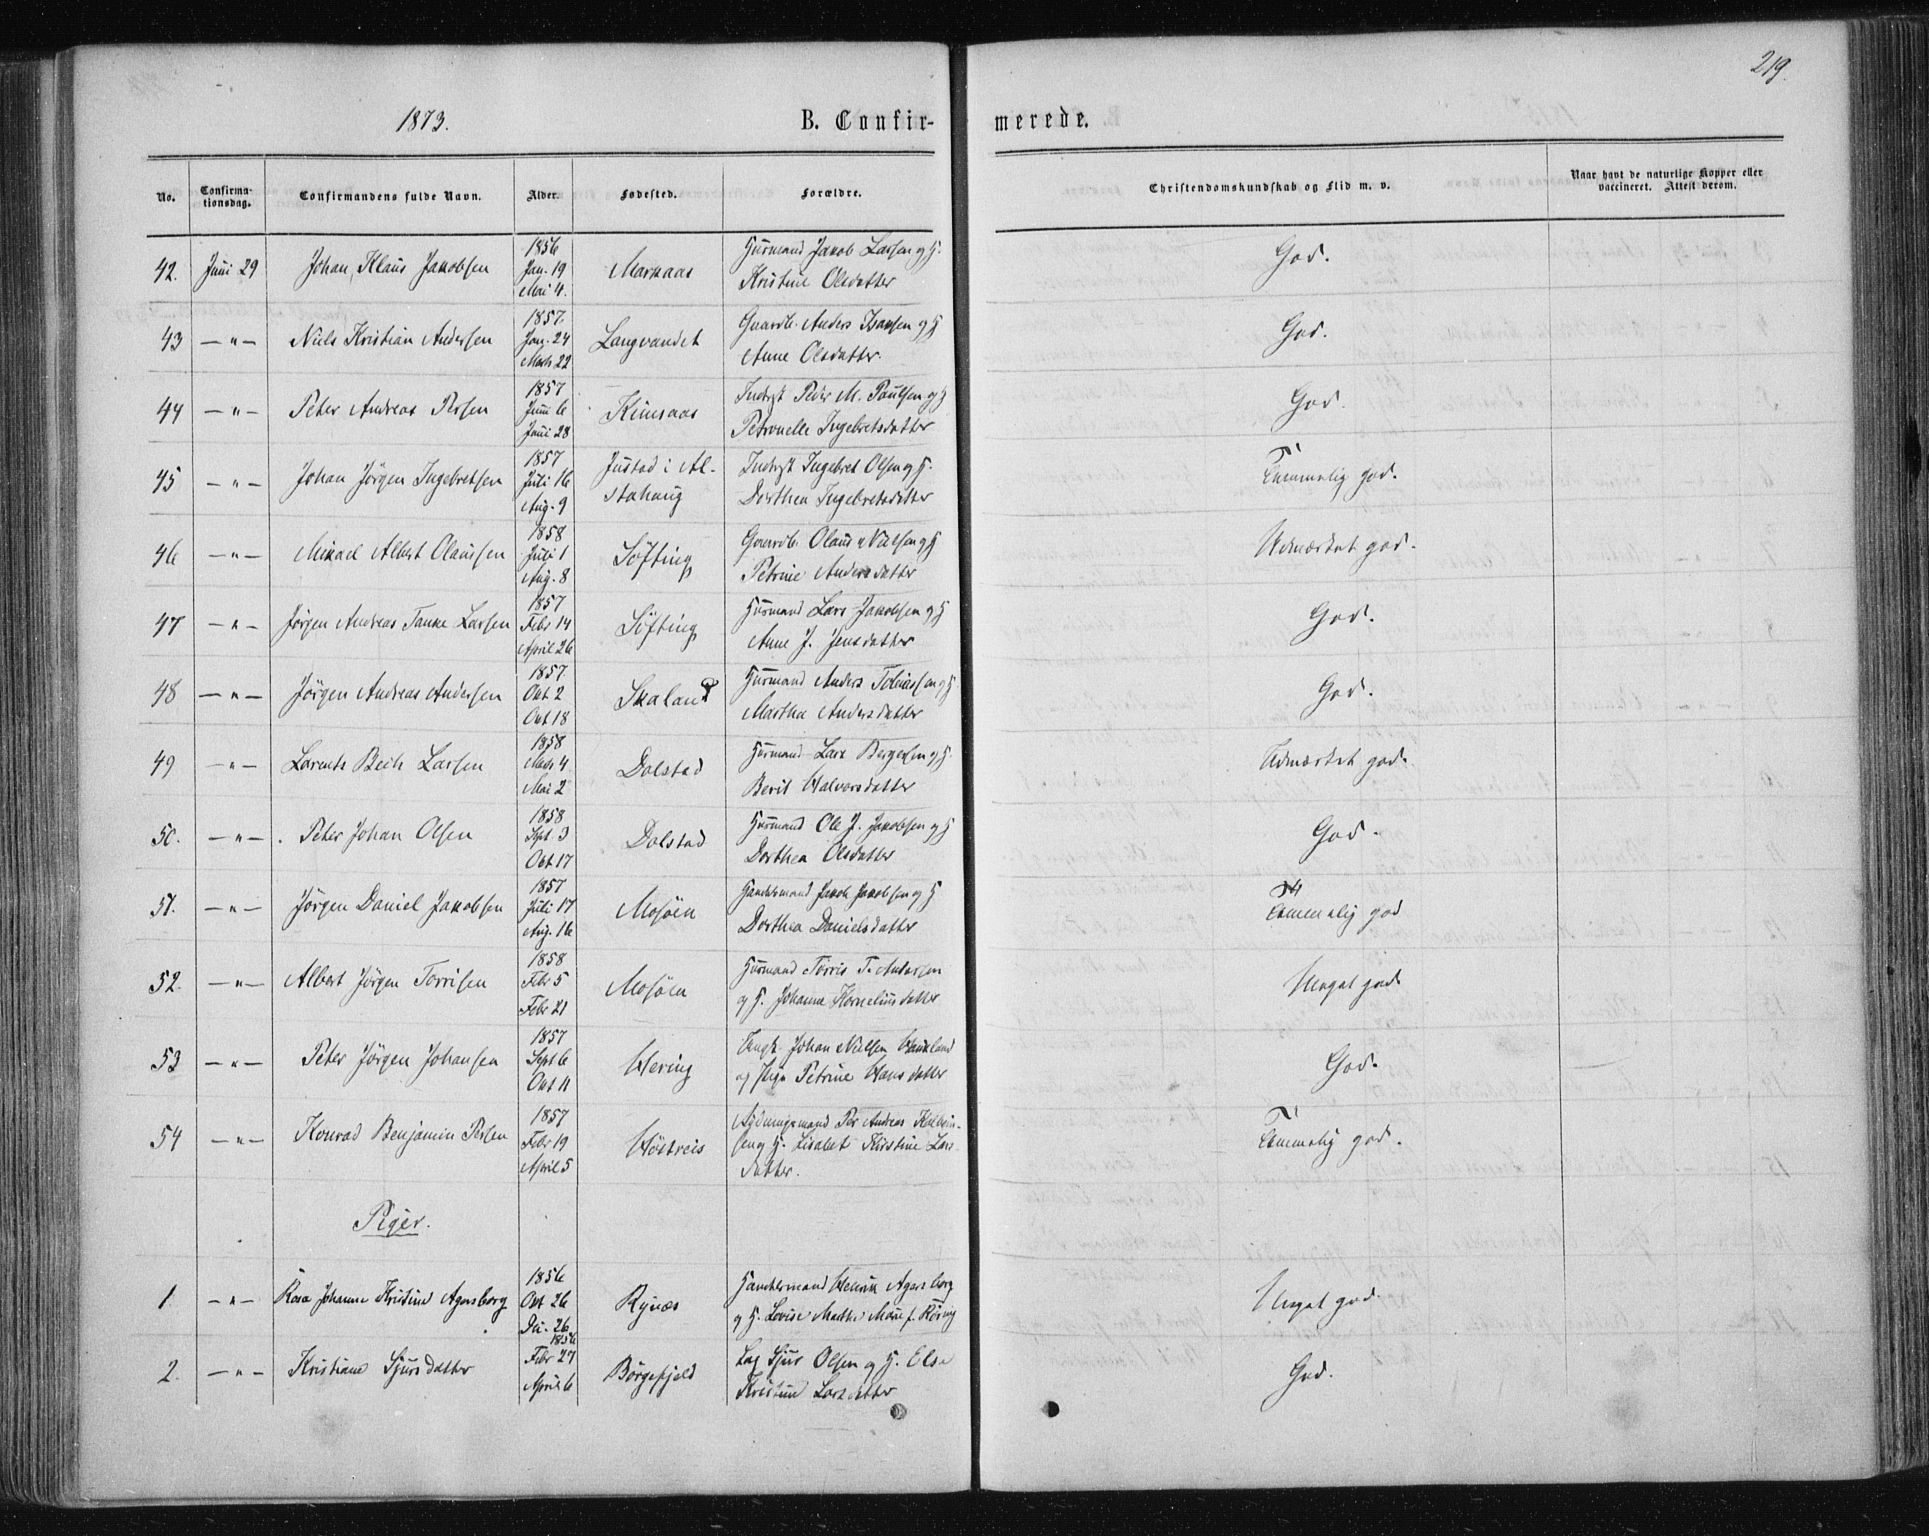 219.
1873.
B. Confir-
merede.
No.
Confirma-
tionsdag.
Confirmandens fulde Navn.
Alder.
Fødested.
Forældre.
Christendomskundskab og Flid m. v.
Naar havt de naturlige Kopper eller
vaccineret. Attest derom.
42. Juni 29 Johan Klaus Jakobsen 1856 Jan. 19 Mai 4. Markaas Huusmand Jakob Larsen og H.
Kristine Olsdatter God.
43 — " — Niels Kristian Andersen 1857 Jan. 24 Marts 22 Langvandet Gaardb. Anders Isaksen og H
Anne Olsdatter. God.
44 — " — Peter Andreas Persen 1857 Juni 6 Juni 28 Kimsaas Inderst Peder M. Paulsen og H
Petronelle Ingebretsdatter God.
45 — " — Johan Jörgen Ingebretsen 1857 Juli 16 Aug. 9 Justad i Al-
stahaug Inderst Ingebret Olsen og H.
Dorthea Ingebretsdatter Temmelig god.
46 — " — Mikael Albert Olaussen 1858 Juli 1 Aug. 8 Söfting Gaardb. Olaus Nilsen og H
Petrine Andersdatter Udmærket god.
47 — " — Jörgen Andreas Tanke Larsen 1857 Febr 14 April 26 Söfting Huusmand Lars Jakobsen og H
Anne J. Jensdatter God.
48 — " — Jörgen Andreas Andersen 1857. Okt. 2 Okt 18 Skaland Huusmand Anders Tobiassen og H.
Martha Andersdatter God.
49 — " — Larents Bech Larsen 1858 Marts 4 Mai 2 Dolstad Huusmand Lars Bergersen og H.
Berit Halvorsdatter Udmærket god.
50. — " — Peter Johan Olsen 1858 Spt. 3 Okt. 17 Dolstad Huusmand Ole J. Jakobsen og H
Dorthea Olsdatter God.
51. — " — Jörgen Daniel Jakobsen 1857 Juli 17 Aug. 16 Mosöen Handelsmand Jakob Jakobsen og H
Dorthea Danielsdatter Temmelig god
52. — " — Albert Jörgen Torrisen 1858 Febr 5 Febr 21 Mosöen Huusmand Torris T. Andersen
og H. Johanna Korneliusdatter Meget god
53 — " — Peter Jörgen Johansen 1857 Sept 6 Okt 11 Hering Ungk. Johan Nielsen
og Pige Petrine Hansdatter God.
54 — " — Konrad Benjamin Persen 1857 Febr 19 April 5 Höstreis Rydningsmand Per Andreas
sen og H. Lisabet Kirstine Lars-
datter. Temmelig god.
Piger.
1. — " — Rosa Johanne Kristine Agersborg 1856 Okt 26 De. 26 Rynes Handelsmand Henrik Agersborg
og H. Lovise Marthe Marie f. Röring Meget god.
2. — " — Kristiane Sjursdatter 1856 Febr 27 April 6 Börgefjeld Lap Sjur Olsen og H. Else
Kristine Larsdatter God.